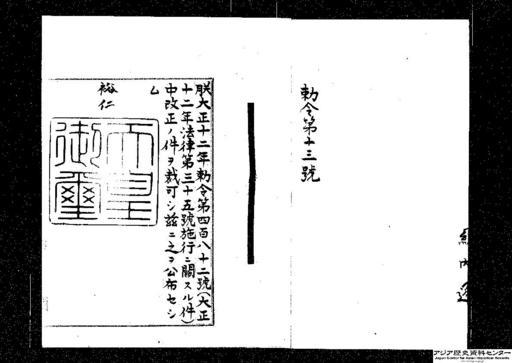 勅令第十三號
朕大正十二年勅令第四百八十二號(大正
十二年法律第三十五號施行ニ關スル件)
中改正ノ件ヲ裁可シ茲ニ之ヲ公布セシ
ム
裕仁
天皇
御璽
アジア歴史資料センター
Japan Center for Asian Historical Records